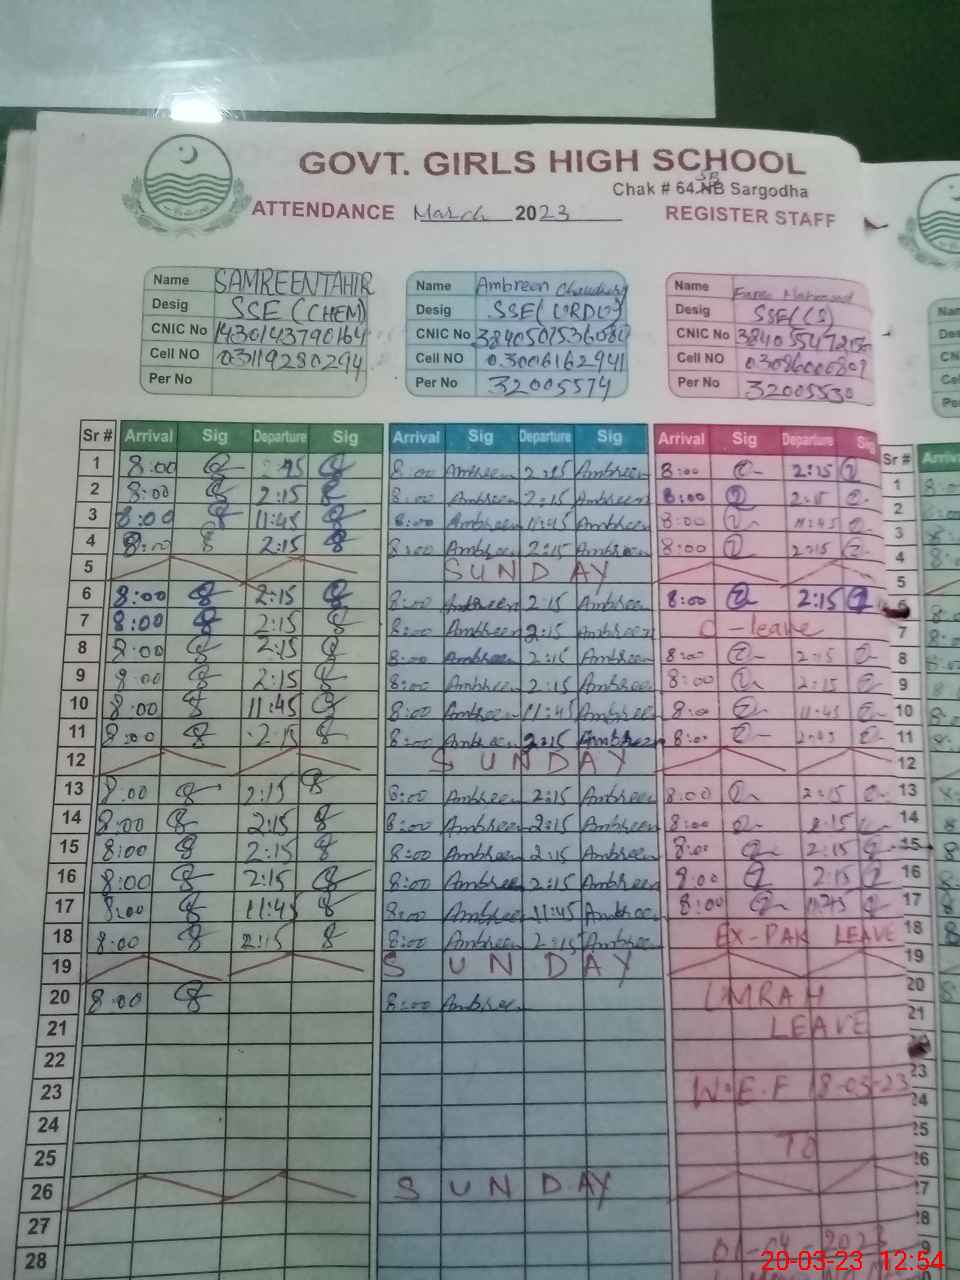 GOVT. GIRLS HIGH SCHOOL
SB
Chak # 64.NB Sargodha
ATTENDANCE March 2023 REGISTER STAFF
Name SAMREEN TAHIR
Desig SSE (CHEM)
CNIC No
Cell NO 03119280294
Per No
Name Ambreen Chaudhary
Desig SSE (URDU)
CNIC No
Cell NO 03006162941
Per No 32005574
Name
Desig SSE (CS)
CNIC No
Cell NO
Per No 32005530
Sr # Arrival Sig Departure Sig Arrival Sig Departure Sig Arrival Sig Departure Sig Sr #
1 8:00 8:00 Ambreen 2:15 Ambreen 8:00 2:15 1
2 8:00 2:15 8:00 Ambreen 2:15 Ambreen 8:00 2:15 2
3 8:00 11:45 8:00 Ambreen 11:45 Ambreen 8:00 11:45 3
4 8:00 2:15 8:00 Ambreen 2:15 Ambreen 8:00 2:15 4
5 SUNDAY 5
6 8:00 2:15 8:00 Ambreen 2:15 Ambreen 8:00 2:15 6
7 8:00 2:15 8:00 Ambreen 2:15 Ambreen C-leave 7
8 8:00 2:15 8:00 Ambreen 2:15 Ambreen 8:00 2:15 8
9 8:00 2:15 8:00 Ambreen 2:15 Ambreen 8:00 2:15 9
10 8:00 11:45 8:00 Ambreen 11:45 Ambreen 8:00 11:45 10
11 8:00 2:15 8:00 Ambreen 2:15 Ambreen 8:00 11
12 SUNDAY 12
13 8:00 2:15 8:00 Ambreen 2:15 Ambreen 8:00 2:15 13
14 8:00 2:15 8:00 Ambreen 2:15 Ambreen 8:00 2:15 14
15 8:00 2:15 8:00 Ambreen 2:15 Ambreen 8:00 2:15 15
16 8:00 2:15 8:00 Ambreen 2:15 Ambreen 8:00 2:15 16
17 8:00 11:45 8:00 Ambreen 11:45 Ambreen 8:00 11:45 17
18 8:00 2:15 8:00 Ambreen 2:15 Ambreen EX-PAK LEAVE 18
19 SUNDAY 19
20 8:00 8:00 Ambreen UMRAH 20
21 LEAVE 21
22
23 W.E.F 18-03-23 23
24 24
25 TO 25
26 SUNDAY 26
27
28 01-04-2023
20-03-23 12:54